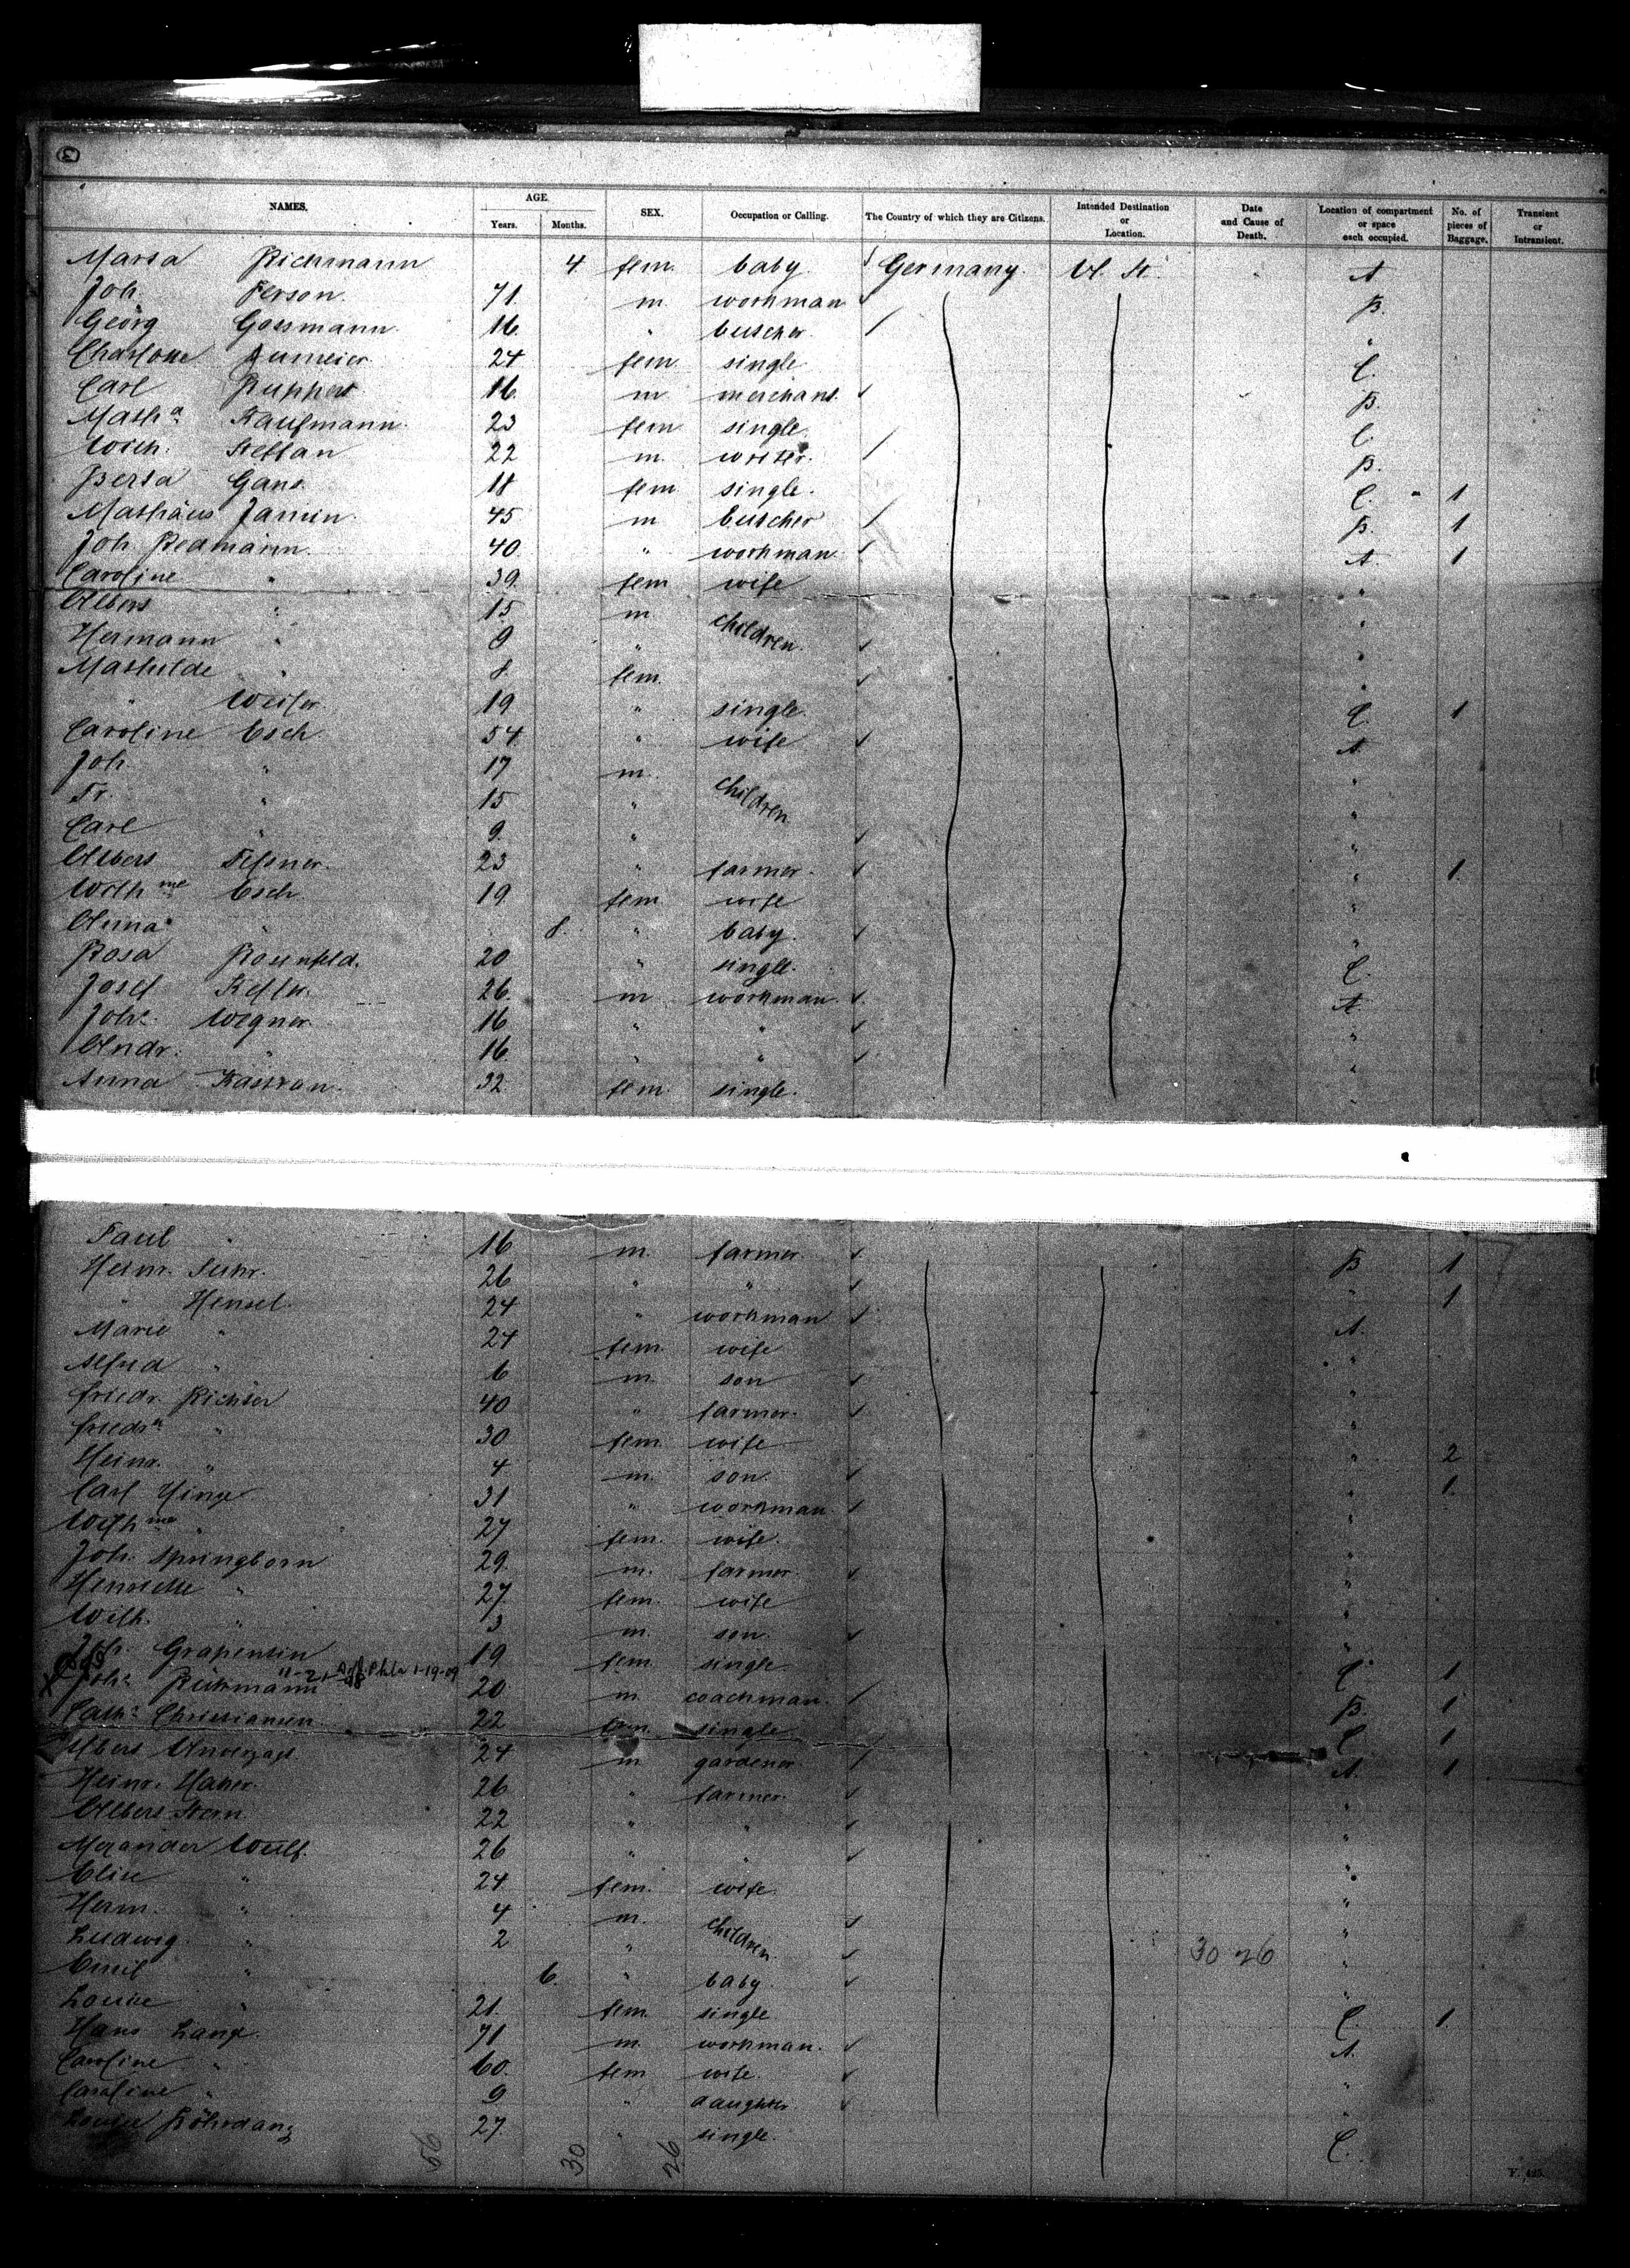 3
NAMES. AGE. SEX. Occupation or Calling. The Country of which they are Citizens. Intended Destination or Location. Date and Cause of Death. Location of compartment or space each occupied. No. of pieces of Baggage. Transient or Intransient.
Years. Months.
Marta Richmann 4 fem. baby. Germany. U. St. A
Joh. Person. 71. m. workman B.
Georg Gossmann. 16. " butcher. "
Charlotte 24 fem single C.
Carl Ruppert 16. m merchant. B.
Math a Kaufmann. 23 fem single. C.
Wilh. Steffan 22 m. writer. B.
Berta Gans. 18 fem single. C. 1
Mathäus Jamin. 45 m butcher B. 1
Joh. Redmann. 40. " workman. A. 1
Caroline " 39. fem wife "
Albert " 15. m children. "
Hermann " 9 " "
Mathilde " 8. fem. "
" Weiler. 19 " single. C. 1
Caroline Esch. 54 " wife A.
Joh. " 17 m. children "
Fr. " 15 " "
Carl " 9. " "
Albert 23 " farmer. " 1.
Wilh me Esch 19. fem wife "
Anna " 8. " baby. "
Rosa Rosenfeld. 20 " single. C.
Josef 26. m workman. A.
Johs. Wegner. 16 " " "
Andr. " 16. " " "
Anna 32. fem. single. "
Paul " 16 m. farmer. B 1
Heinr. Suhr. 26 " " " 1
" Hensel. 24 " workman A.
Marie " 24 fem. wife "
Alfred " 6 m. son "
Friedr. Richter 40 " farmer. "
Friedr a " 30 fem. wife " 2
Heinr. " 4 m. son. " 1.
Carl 31 " workman. "
Wilh me " 27 fem. wife. "
Joh. Springborn 29. m. farmer. "
Henriette " 27. fem. wife "
Wilh. " 3 m. son. "
Joh. Grapentin 19 fem. single C. 1
Johs. Richmann 20 m. coachman. B. 1
1-19-09
Cath a Christiansen 22 fem. single C 1
Albert 24 m. gardener A. 1
Heinr. 26 " farmer. "
Albert Stern. 22 " " "
Alexander Wulf. 26 " " "
Elise " 24 fem. wife. "
Herm. " 4 m. children. "
Ludwig. " 2 " "
30 26
Emil " 6. " baby. "
Louise " 21. fem. single C. 1.
Hans Lange. 71 m. workman. A.
Caroline " 60. fem wife. "
Caroline " 9 " daughter "
Louise 27. " single. C.
56 30 26